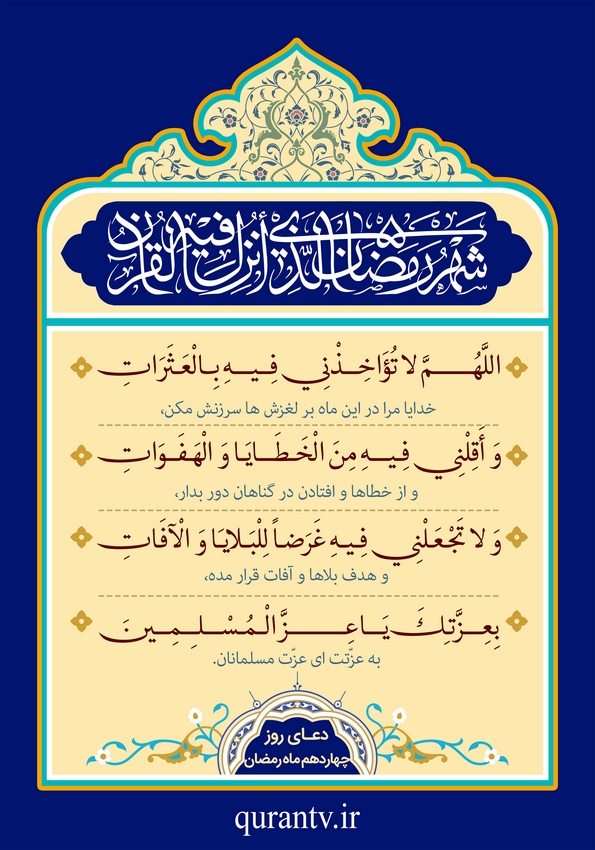 شَهْرُ رَمَضَانَ الَّذِي أُنْزِلَ فِيهِ الْقُرْآنُ
اللَّهُمَّ لا تُؤَاخِذْنِي فِيهِ بِالْعَثَرَاتِ
خدایا مرا در این ماه بر لغزش ها سرزنش مکن،
وَ أَقِلْنِي فِيهِ مِنَ الْخَطَايَا وَ الْهَفَوَاتِ
و از خطاها و افتادن در گناهان دور بدار،
وَ لا تَجْعَلْنِي فِيهِ غَرَضاً لِلْبَلايَا وَ الْآفَاتِ
و هدف بلاها و آفات قرار مده،
بِعِزَّتِكَ يَا عِزَّ الْمُسْلِمِينَ
به عزّتت ای عزّت مسلمانان.
دعـای روز
چهاردهم ماه رمضان
qurantv.ir